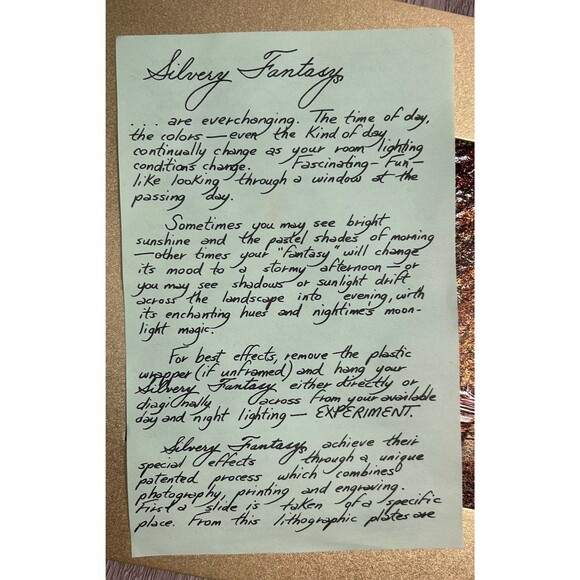 Silvery Fantasys
. . . are everchanging. The time of day,
the colors — even the kind of day
continually change as your room lighting
conditions change. Fascinating - fun -
like looking through a window at the
passing day.
Sometimes you may see bright
sunshine and the pastel shades of morning
— other times your "fantasy" will change
its mood to a stormy afternoon — or
you may see shadows or sunlight drift
across the landscape into evening, with
its enchanting hues and nightime's moon-
light magic.
For best effects, remove the plastic
wrapper (if unframed) and hang your
Silvery Fantasy either directly or
diagionally across from your available
day and night lighting — EXPERIMENT.
Silvery Fantasys achieve their
special effects through a unique
patented process which combines
photography, printing and engraving.
First a slide is taken of a specific
place. From this lithographic plates are